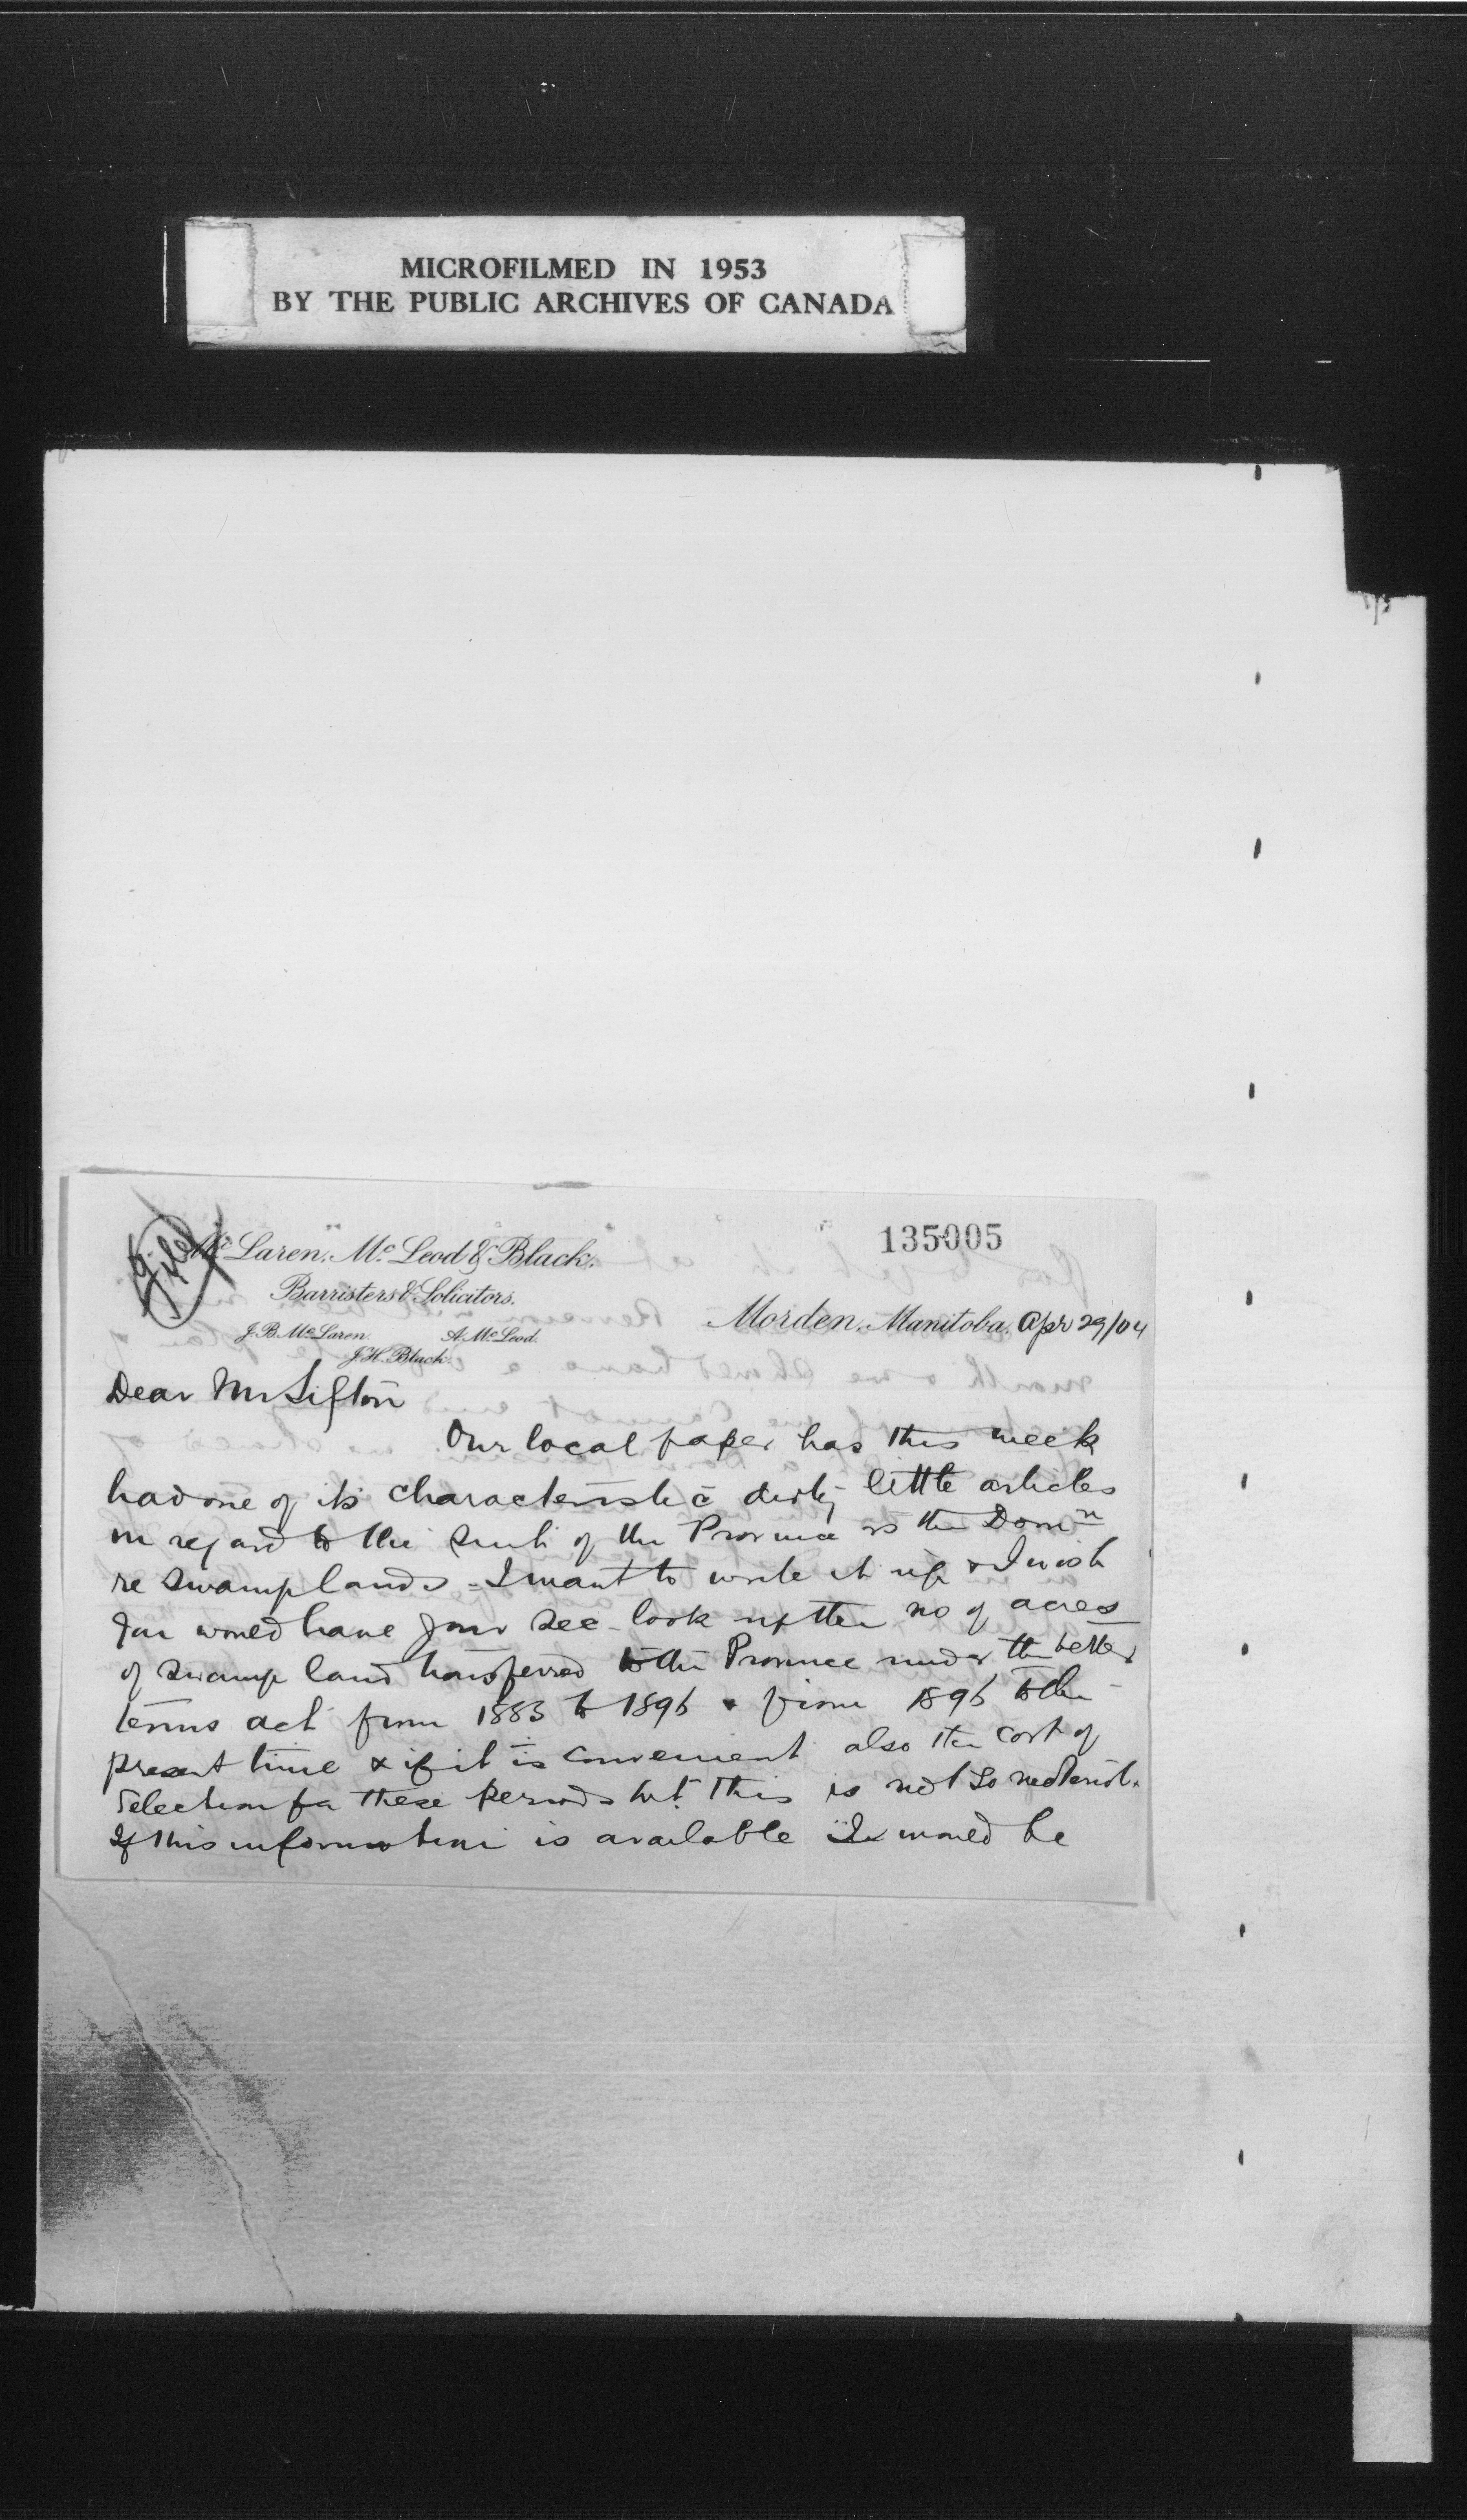 MICROFILMED IN 1953
BY THE PUBLIC ARCHIVES OF CANADA
File
135005
Mc Laren, Mc Leod & Black.
Barristers & Solicitors.
J. B. Mc Laren. A. Mc Leod.
J. H. Black.
Morden, Manitoba, Apr 29/04
Dear Mr Sifton
Our local paper has this week
had one of its characteristic dirty little articles
in regard to the suit of the Province vs the Domn
re swamp lands - I want to write it up & I wish
you would have your Sec - look up the no of acres
of swamp land transferred to the Province under the better
terms act from 1885 to 1896 & from 1896 to the
present time & if it is convenient also the cost of
selection for these periods but this is not so material.
If this information is available I would be